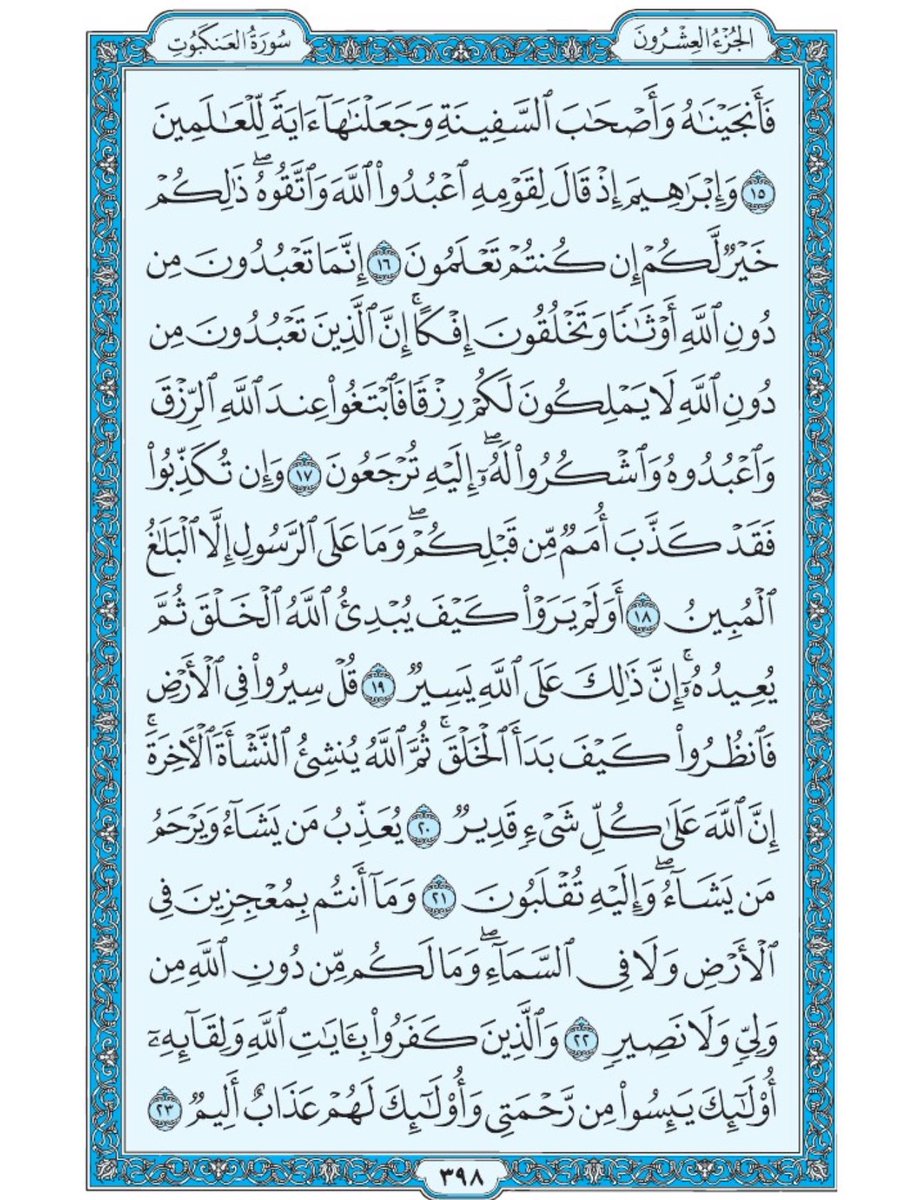 الجُزْءُ العِشْرُونَ
سُورَةُ العَنكَبُوتِ
فَأَنجَيْنَٰهُ وَأَصْحَٰبَ ٱلسَّفِينَةِ وَجَعَلْنَٰهَآ ءَايَةً لِّلْعَٰلَمِينَ
١٥ وَإِبْرَٰهِيمَ إِذْ قَالَ لِقَوْمِهِ ٱعْبُدُوا۟ ٱللَّهَ وَٱتَّقُوهُۖ ذَٰلِكُمْ
خَيْرٌ لَّكُمْ إِن كُنتُمْ تَعْلَمُونَ ١٦ إِنَّمَا تَعْبُدُونَ مِن
دُونِ ٱللَّهِ أَوْثَٰنًا وَتَخْلُقُونَ إِفْكًاۚ إِنَّ ٱلَّذِينَ تَعْبُدُونَ مِن
دُونِ ٱللَّهِ لَا يَمْلِكُونَ لَكُمْ رِزْقًا فَٱبْتَغُوا۟ عِندَ ٱللَّهِ ٱلرِّزْقَ
وَٱعْبُدُوهُ وَٱشْكُرُوا۟ لَهُۥٓۖ إِلَيْهِ تُرْجَعُونَ ١٧ وَإِن تُكَذِّبُوا۟
فَقَدْ كَذَّبَ أُمَمٌ مِّن قَبْلِكُمْۖ وَمَا عَلَى ٱلرَّسُولِ إِلَّا ٱلْبَلَٰغُ
ٱلْمُبِينُ ١٨ أَوَلَمْ يَرَوْا۟ كَيْفَ يُبْدِئُ ٱللَّهُ ٱلْخَلْقَ ثُمَّ
يُعِيدُهُۥٓۚ إِنَّ ذَٰلِكَ عَلَى ٱللَّهِ يَسِيرٌ ١٩ قُلْ سِيرُوا۟ فِى ٱلْأَرْضِ
فَٱنظُرُوا۟ كَيْفَ بَدَأَ ٱلْخَلْقَۚ ثُمَّ ٱللَّهُ يُنشِئُ ٱلنَّشْأَةَ ٱلْءَاخِرَةَۚ
إِنَّ ٱللَّهَ عَلَىٰ كُلِّ شَىْءٍ قَدِيرٌ ٢٠ يُعَذِّبُ مَن يَشَآءُ وَيَرْحَمُ
مَن يَشَآءُۖ وَإِلَيْهِ تُقْلَبُونَ ٢١ وَمَآ أَنتُم بِمُعْجِزِينَ فِى
ٱلْأَرْضِ وَلَا فِى ٱلسَّمَآءِۖ وَمَا لَكُم مِّن دُونِ ٱللَّهِ مِن
وَلِىٍّ وَلَا نَصِيرٍ ٢٢ وَٱلَّذِينَ كَفَرُوا۟ بِـَٔايَٰتِ ٱللَّهِ وَلِقَآئِهِۦٓ
أُو۟لَٰٓئِكَ يَئِسُوا۟ مِن رَّحْمَتِى وَأُو۟لَٰٓئِكَ لَهُمْ عَذَابٌ أَلِيمٌ ٢٣
٣٩٨